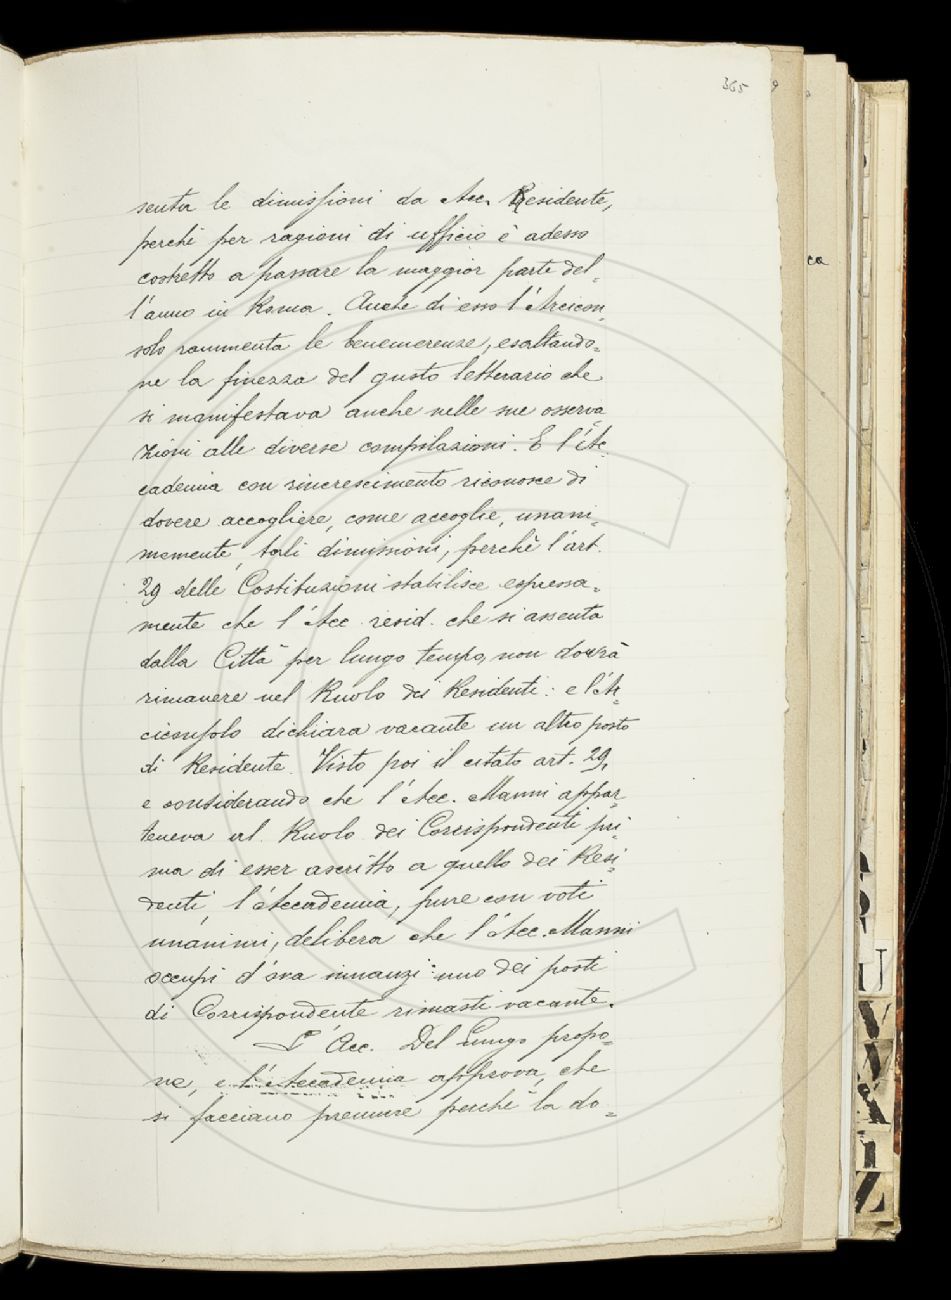 365
senta le dimissioni da Acc. Residente,
perchè per ragioni di ufficio è adesso
costretto a passare la maggior parte del=
l'anno in Roma. Anche di esso l'Arcicon=
solo rammenta le benemerenze, esaltando=
ne la finezza del gusto letterario che
si manifestava anche nelle sue osserva
zioni alle diverse compilazioni. E l'Ac=
cademia con rincrescimento riconosce di
dovere accogliere, come accoglie, unani=
memente, tali dimissioni, perchè l'art.
29 delle Costituzioni stabilisce espressa=
mente che l'Acc. resid. che si assenta
dalla Città per lungo tempo, non dovrà
rimanere nel Ruolo dei Residenti: e l'Ar=
ciconsolo dichiara vacante un altro posto
di Residente. Visto poi il citato art. 29,
e considerando che l'Acc. Manni appar=
teneva al Ruolo dei Corrispondenti pri=
ma di esser ascritto a quello dei Resi=
denti l'Accademia, pure con voti
unanimi, delibera che l'Acc. Manni
occupi d'ora innanzi uno dei posti
di Corrispondente rimasti vacante.
L'Acc. Del Lungo propo=
ne, e l'Accademia approva, che
si facciano premure perchè la do=
ca
U
V
X
Z